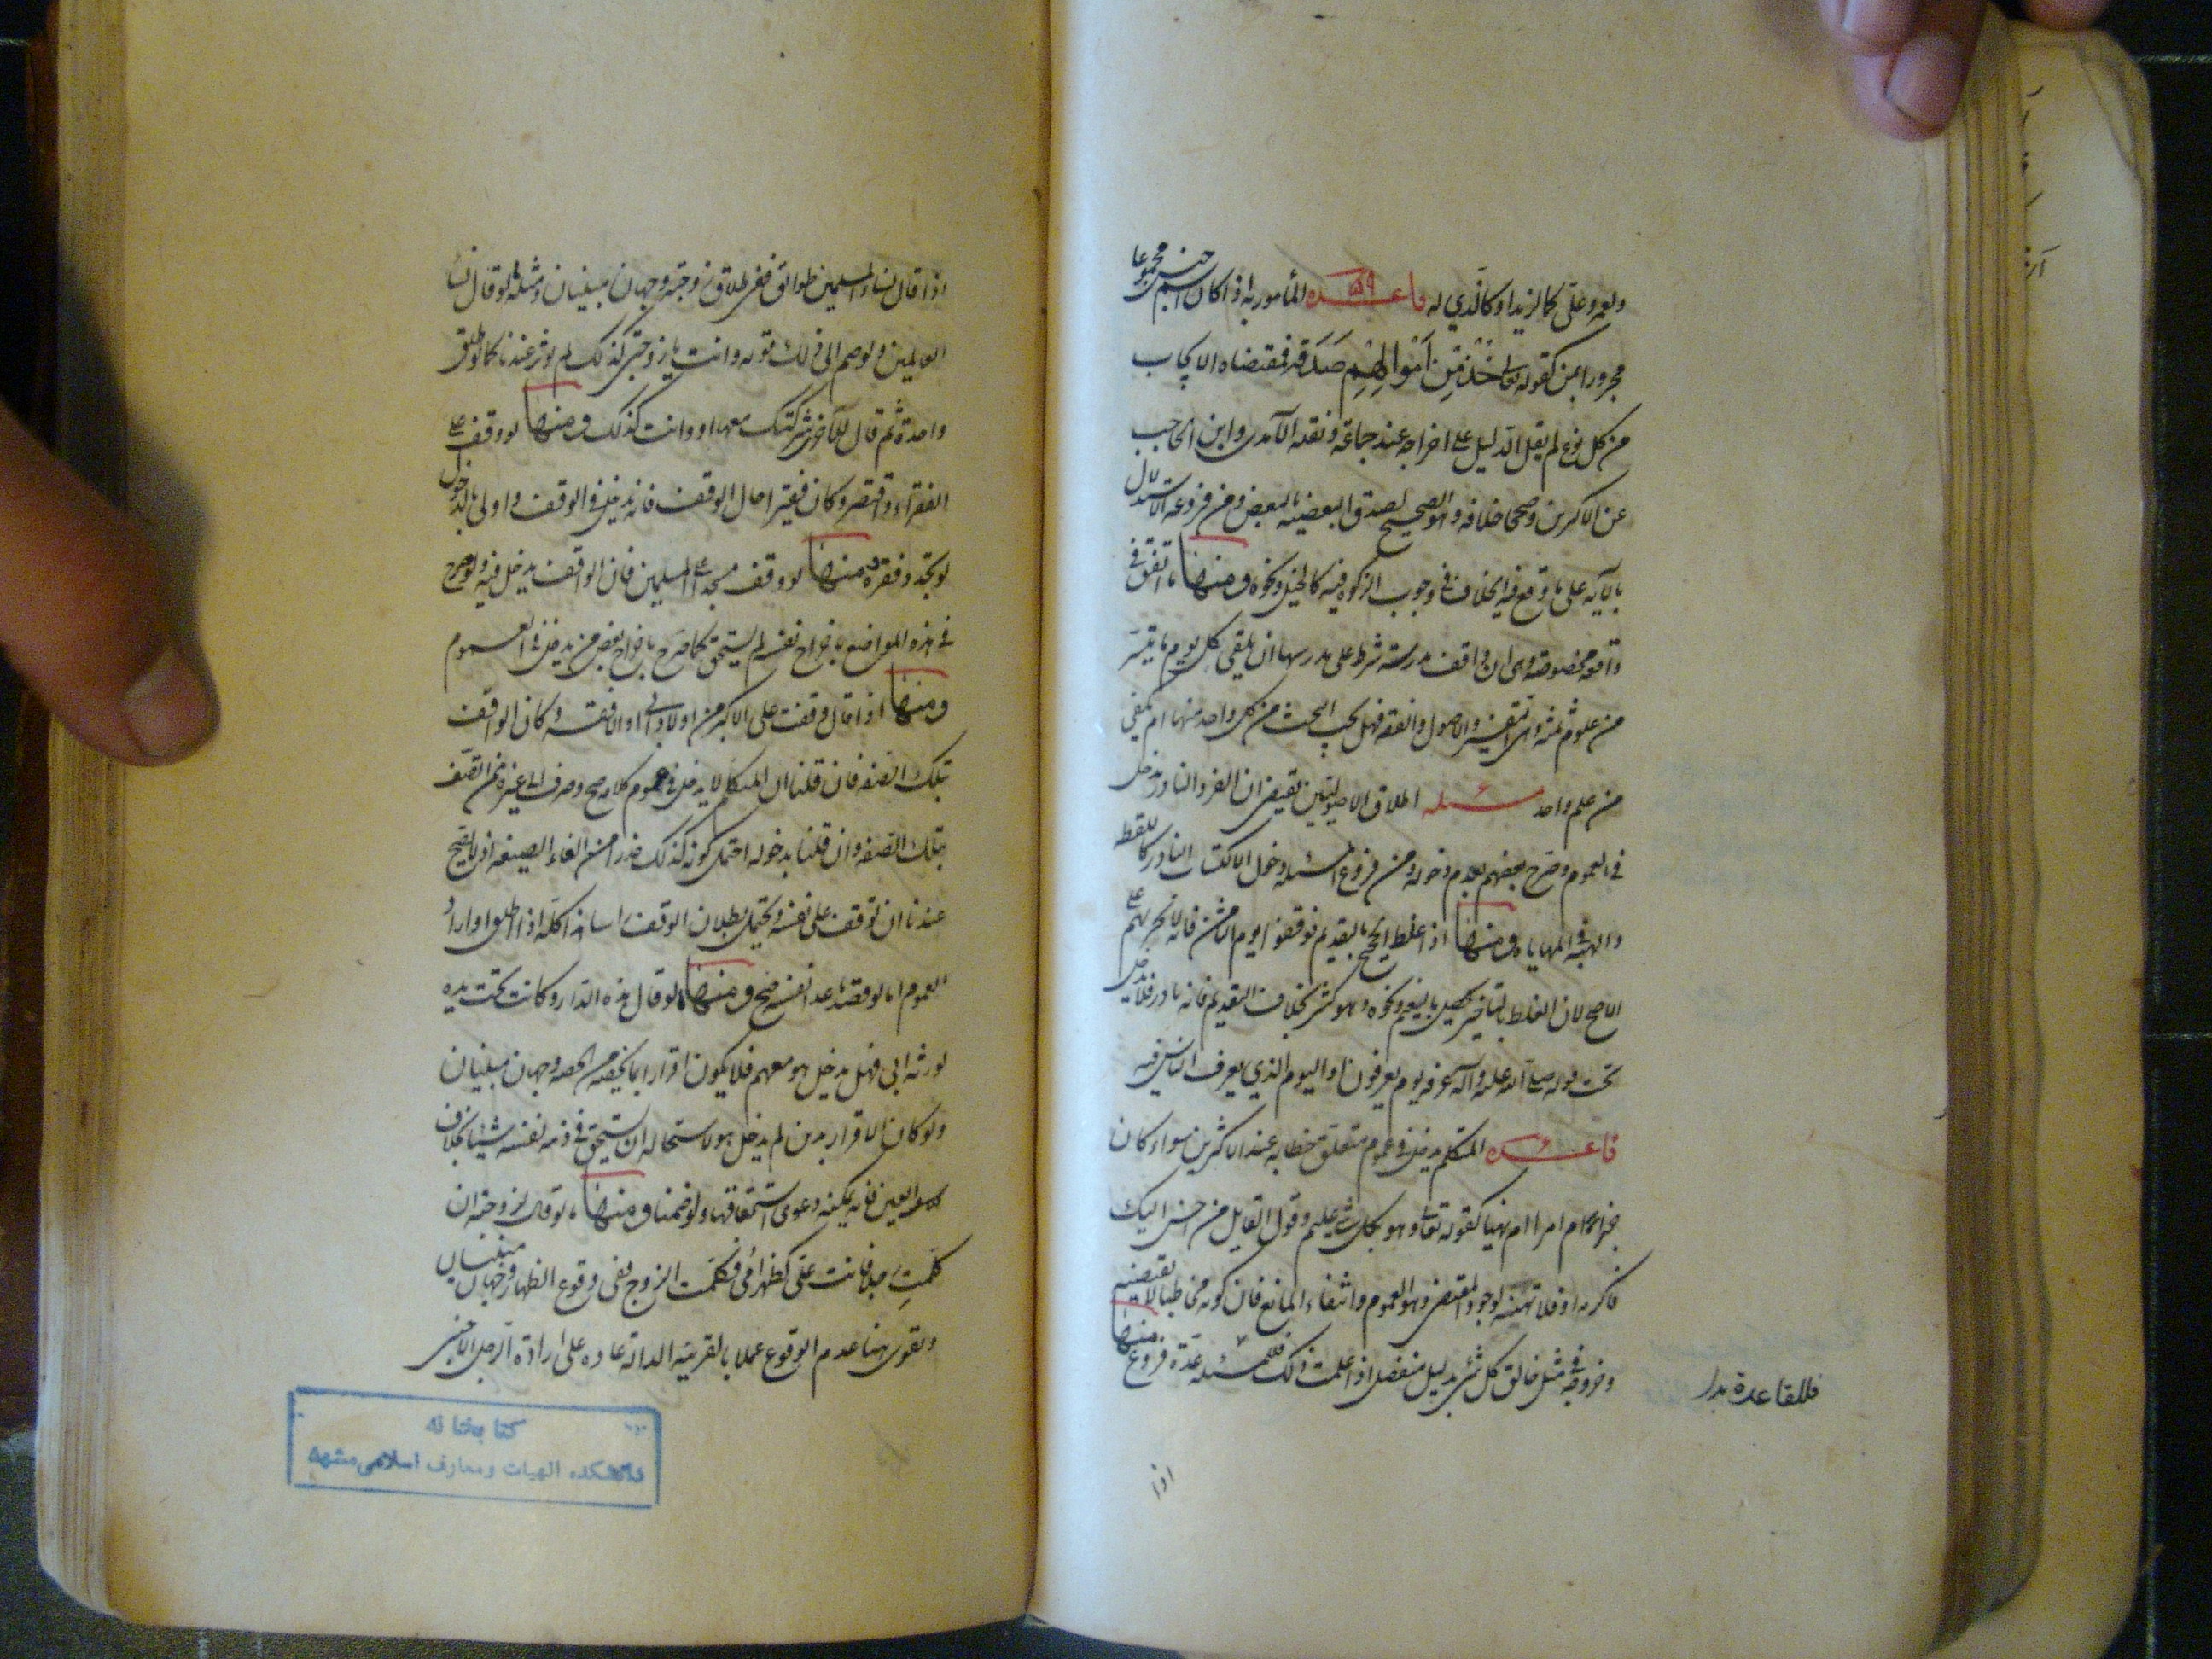 ولعمرو علي كما لزيد او كالذي له قاعده ٥٩ المأمور به اذا كان اسم جنس مجموعا
مجرورا بمن كقوله تعالى خُذْ مِن اَمْوالِهِم صَدَقة فمقتضاه الايجاب
من كل نوع لم يقل الدليل على اخراجه عند جماعة ونقله الآمدي وابن الحاجب
عن الاكثرين وصححا خلافه وهو الصحيح لصدق البعضية بالبعض ومن فروعه الاستدلال
بالآية على ما وقع فيه الخلاف في وجوب الزكوة فيه كالخيل ونحوه ومنها ما اتفق في
واقعة مخصوصة وهي ان واقف مدرسة شرط على مدرسها ان يلقي كل يوم ما تيسر
من علوم ثلثة وهي التفسير والاصول والفقه فهل يجب البحث من كل واحد منها ام يكفي
من علم واحد مسئله اطلاق الاصوليين يقتضي ان الفرد النادر يدخل
في العموم وصرح بعضهم بعدم دخوله ومن فروع المسئله دخول الاكتساب النادر كاللقطة
والهبة في المهاياة ومنها اذا غلط الحجيج بالتقديم فوقفوا يوم الثامن فانه لا يجزيهم على
الاصح لان الغلط بالتاخير يحصل بالغيم ونحوه وهو كثير بخلاف التقديم فانه نادر فلا يدخل
تحت قوله صلى الله عليه وآله عرفة يوم يعرفون او اليوم الذي يعرف الناس فيه
قاعده ٦٠ المتكلم يدخل في عموم متعلق خطابه عند الاكثرين سواء كان
خبرا ام امرا ام نهيا كقوله تعالى وهو بكل شيء عليم وقول القايل من احسن اليك
فاكرمه او فلا تهنه لوجود المقتضي وهو العموم وانتفاء المانع فان كونه مخاطبا لا يقتضيه
وخروجه في مثل خالق كل شيء بدليل منفصل اذا علمت ذلك فللمسئله عدة فروع منها
فللقاعدة بدل
اذا
اذا قال نساء المسلمين طوالق ففي طلاق زوجته وجهان مبنيان ومثله لو قال نساء
العالمين ولو ضم الى ذلك قوله وانت يا زوجتي كذلك لم يؤثر عندنا كما لو طلق
واحدة ثم قال للاخرى شركتك معها او وانت كذلك ومنها لو وقف على
الفقراء واقتصر وكان فقيرا حال الوقف فانه يدخل في الوقف واولى بالدخول
لو تجدد فقره ومنها لو وقف مسجدا على المسلمين فان الواقف يدخل فيه ولو صرح
في هذه المواضع باخراج نفسه لم يستحق كما صرح باخراج بعض من يدخل في العموم
ومنها اذا قال وقفت على الاكبر من اولاد ابي او الافقه وكان الواقف
بتلك الصفة فان قلنا ان المتكلم لا يدخل في عموم كلامه صح وصرف الى غيره ممن اتصف
بتلك الصفة وان قلنا بدخوله احتمل كونه كذلك حذرا من الغاء الصيغة اذ لا يصح
عندنا ان يوقف على نفسه ويحتمل بطلان الوقف راسا هذا كله اذا اطلق او اراد
العموم اما لو قصد ما عدا نفسه صح ومنها لو قال هذه الدار وكانت تحت يده
لورثة ابي فهل يدخل هو معهم فلا يكون اقرارا بما يخصه من الحصة وجهان مبنيان
ولو كان الاقرار بدين لم يدخل هو لاستحالة ان يستحق في ذمة نفسه شيئا بخلاف
العين فانه يمكنه دعوى استحقاقها ولو ضمنا ومنها ما لو قال لزوجته ان
كلمتِ رجلا فانت علي كظهر امي فكلمت الزوج ففي وقوع الظهار وجهان مبنيان
ويقوى هنا عدم الوقوع عملا بالقرينة الدالة عادة على ارادة الرجل الاجنبي
كتابخانه
دانشكده الهيات ومعارف اسلامى مشهد